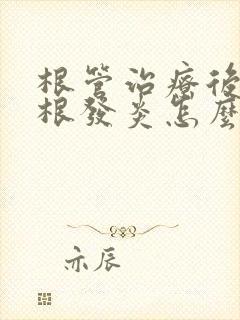 根管治療後
根發炎怎麼
亦辰